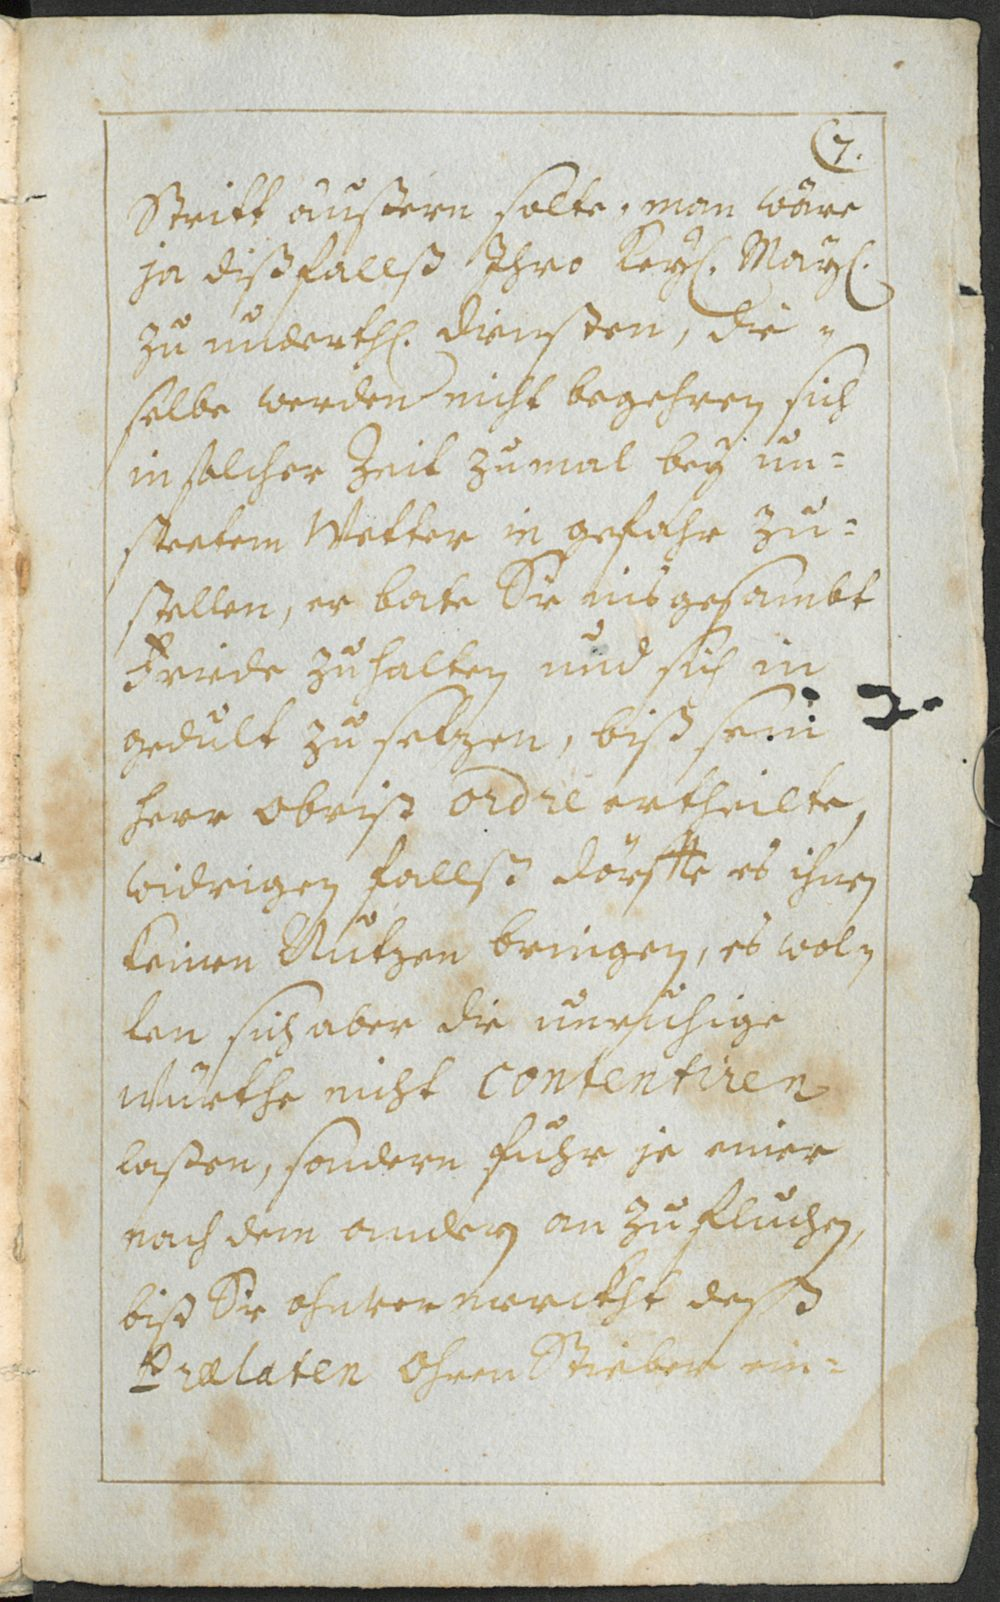 7.
Stritt äußern solte, man wäre
ja dißfallß Ihro Keyß. Mayß.
zu underth. diensten, die „
selbe werden nicht begehren sich
in solcher Zeit zumal bey un=
steetem Wetter in gefahr zu=
stellen, er bate Sie ins gesambt
Friede zu halten und sich in
gedult zu setzen, biß sein
herr Obrist ordre ertheilte,
widrigen fallß dörffte es ihnen
keinen Nutzen bringen, es wol„
len sich aber die unruhige
Würthe nicht contentiren
laßen, sondern fuhr je einer
nach dem andern an zu fluchen,
biß Sie ohnvermerckht deß
Prælaten Ohren Stieber ein=